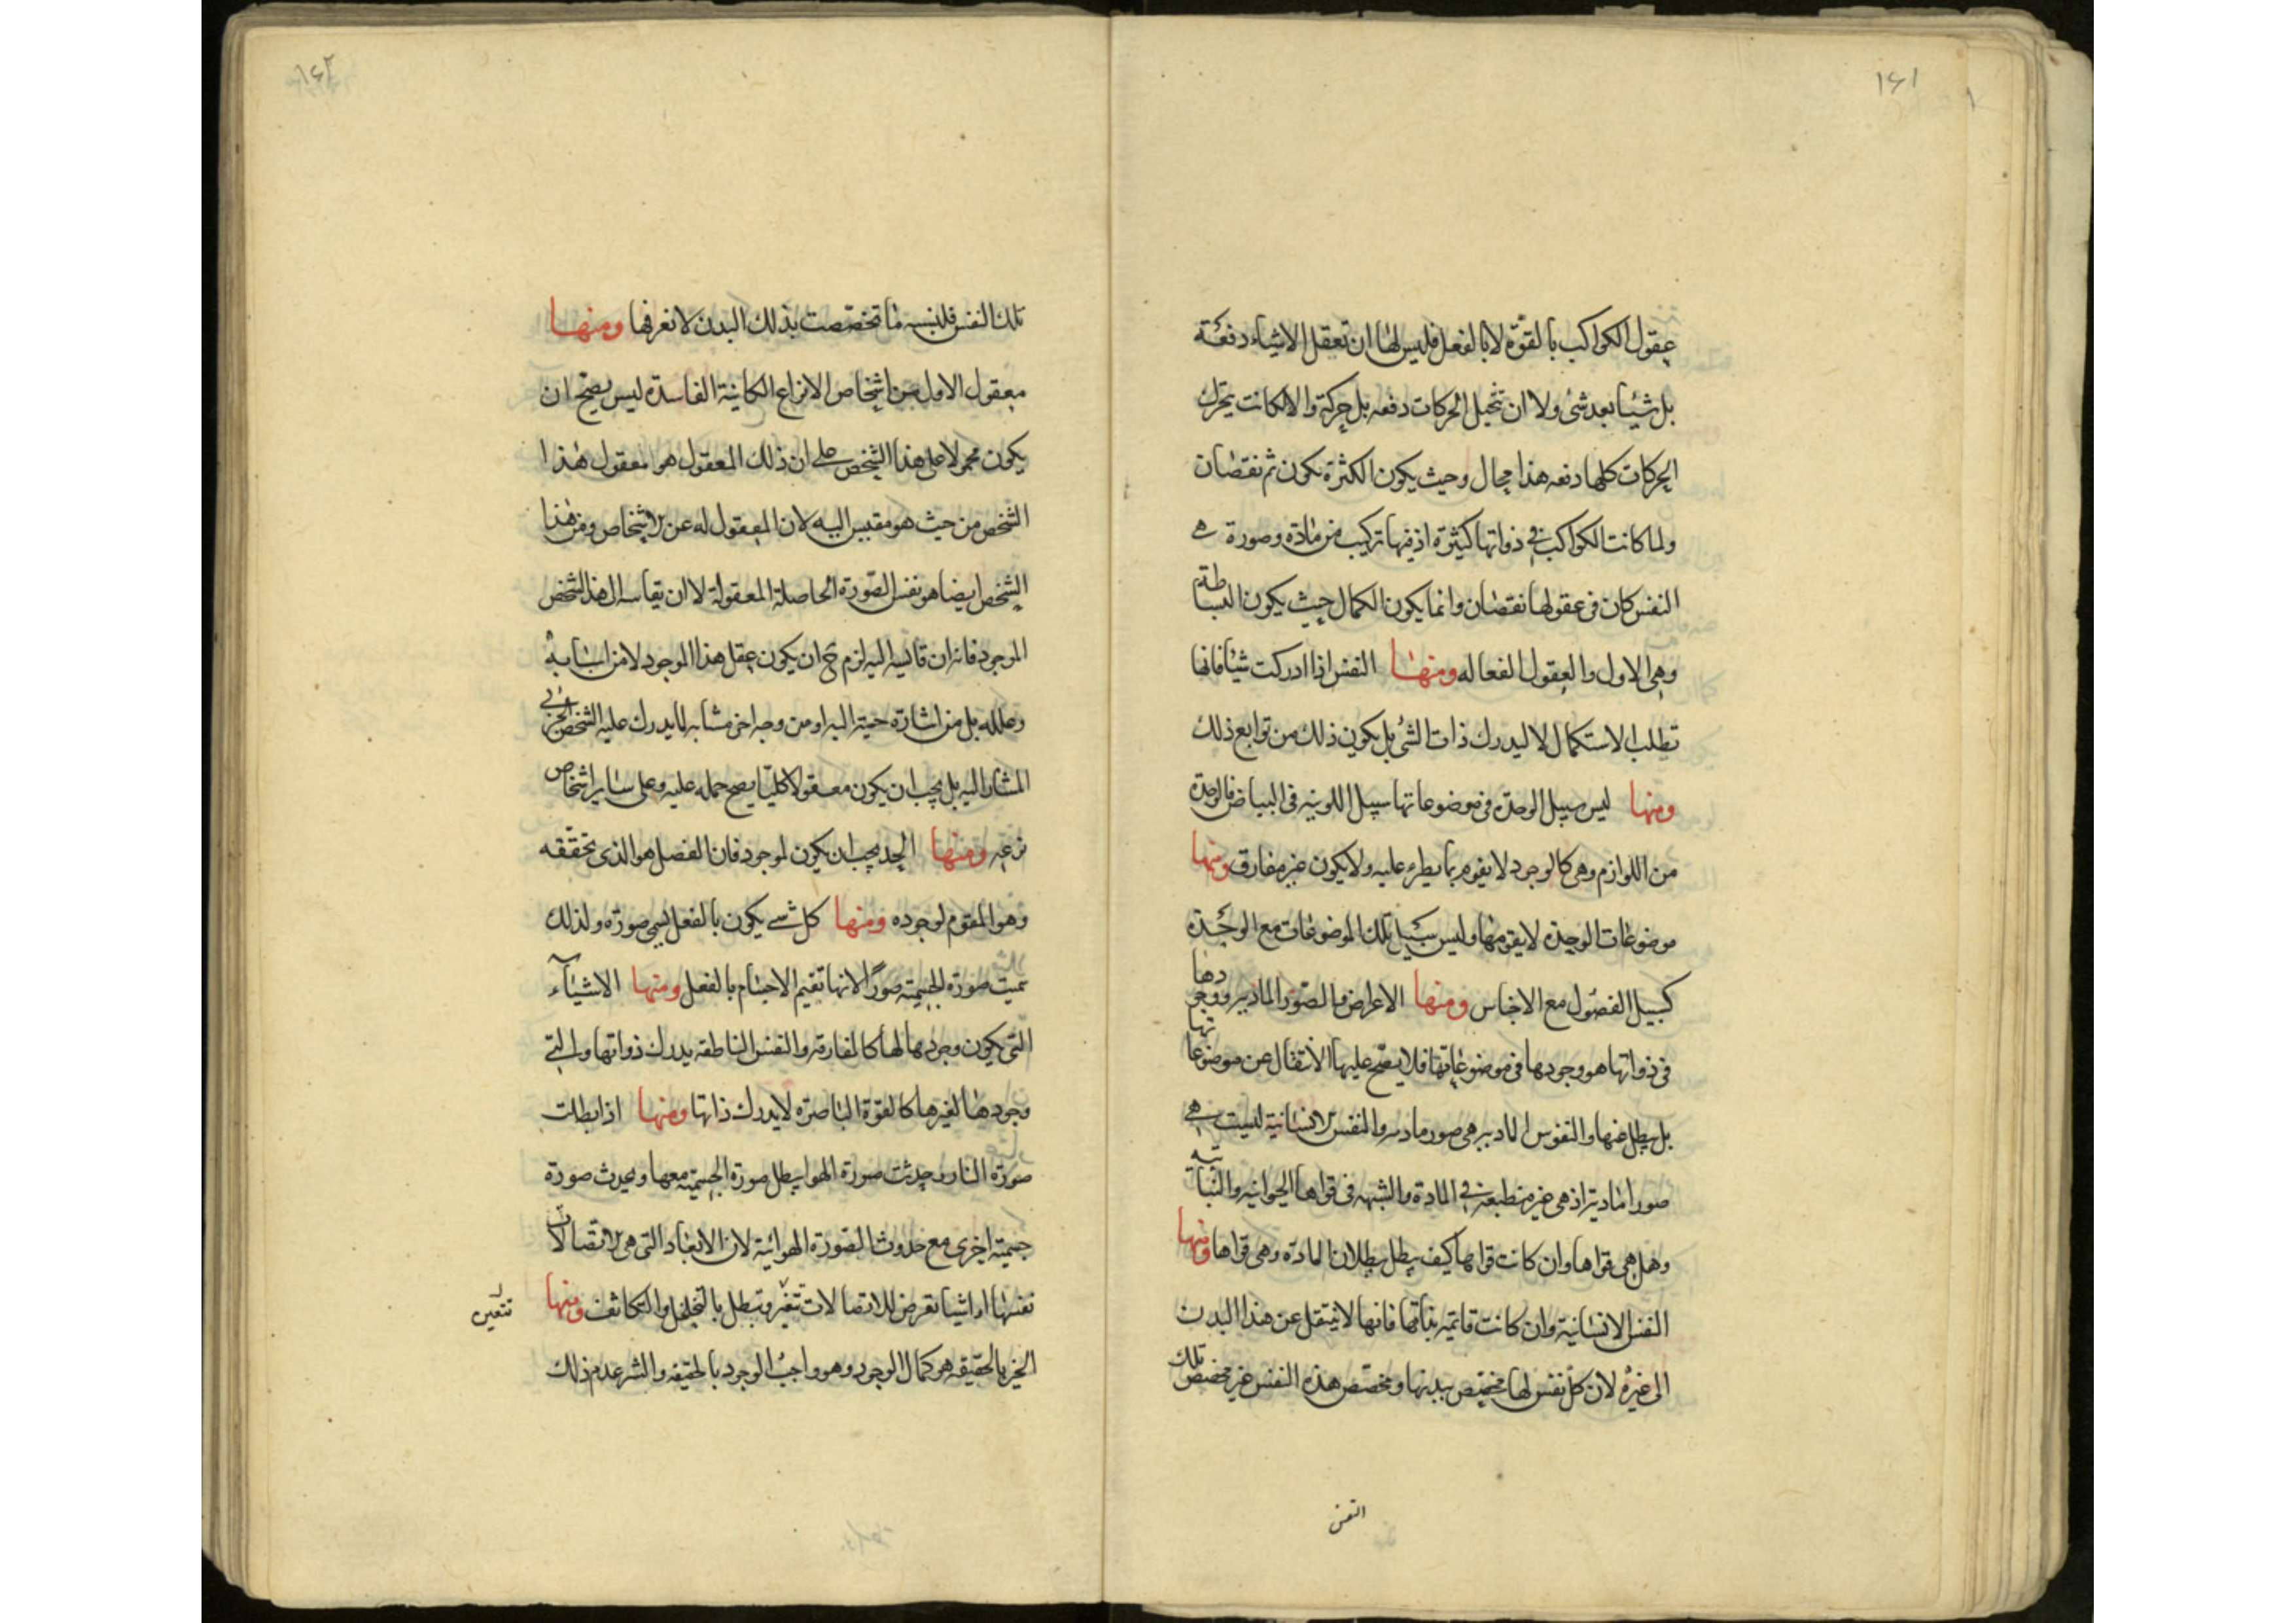 ١٤١
عقول الكواكب بالقوّة لا بالفعل فليس لها ان تعقل الاشياء دفعة
بل شيئا بعد شئ ولا ان تتخيل الحركات دفعه بل حركة والا لكانت يتحرك
الحركات كلها دفعه هذا محال وحيث يكون الكثرة يكون ثم نقصان
ولما كانت الكواكب في ذواتها كثيرة اذ فيها تركيب من مادة وصورة هي
النفس كان فى عقولها نقصان وانما يكون الكمال حيث يكون البساطة
وهي الاول والعقول الفعاله ومنها النفس اذا ادركت شيئا فانها
تطلب الاستكمال لا ليدرك ذات الشئ بل يكون ذلك من توابع ذلك
ومنها ليس سبيل الوحدة فى موضوعاتها سبيل اللونيه فى البياض فالوحدة
من اللوازم وهى كالوجود لا يقوم ما يطرء عليه ولا يكون غير مفارق ومنها
موضوعات الوحدة لا يقومها وليس سبيل تلك الموضوعات مع الوحدة
كسبيل الفصول مع الاجناس ومنها الاعراض والصور الماديه ووجودها
فى ذواتها هو وجودها فى موضوعاتها فلا يصح عليها الانتقال عن موضوعاتها
بل يبطل عنها والنفوس الماديه هى صور ماديه والنفس الانسانية ليست هي
صورا مادية اذ هى غير منطبعة في المادة والشبهه فى قواها الحيوانيه والنباتيه
وهل هى قواها وان كانت قواها كيف يبطل ببطلان المادة وهى قواها ومنها
النفس الانسانية وان كانت قائمة بذاتها فانها لا ينتقل عن هذا البدن
الى غيره لان كل نفس لها مخصّص ببدنها ومخصّص هذه النفس غير مخصّص تلك
النفس
١٤٢
تلك النفس فلنسبه ما تخصّصت بذلك البدن لا نعرفها ومنها
معقول الاول من اشخاص الانواع الكاينة الفاسدة ليس يصح ان
يكون محمولا على هذا الشخص على ان ذلك المعقول هو معقول هذا
الشخص من حيث هو مقيس اليه لان المعقول له عن الاشخاص وعن هذا
الشخص ايضا هو نفس الصورة الحاصلة المعقولة لا ان يقاس الى هذا الشخص
الموجود فانه ان قايسه اليه لزم ح ان يكون عقل هذا الموجود لا من اسبابه
وعلله بل من اشارة حسية اليه او من وجه اخر مشابه لما يدرك عليه الشخص الجزئي
المشار اليه بل يجب ان يكون معقولا كليّا يصح حمله عليه وعلى ساير اشخاص
نوعه ومنها الحد يجب ان يكون لموجود فان الفصل هو الذى تحققه
وهو المقوم لوجوده ومنها كل شے يكون بالفعل يسمى صورة ولذلك
سميت صورة الجسمية صورًا لانها تقيم الاجسام بالفعل ومنها الاشياء
التى يكون وجودها لها كالمفارقه والنفس الناطقه يدرك ذواتها والتى
وجودها لغيرها كالقوة الباصرة لا يدرك ذاتها ومنها اذا بطلت
صورة النار وحدثت صورة الهوا يبطل صورة الجسمية معها ويحدث صورة
جسمية اخرى مع حدوث الصورة الهوائية لان الابعاد التى هى الاتصالات
نفسها او اشيا تعرض للاتصالات تتغير وتبطل بالتخلخل والتكاثف ومنها
الخير بالحقيقه هو كمال الوجود وهو واجب الوجود بالحقيقه والشر عدم ذلك